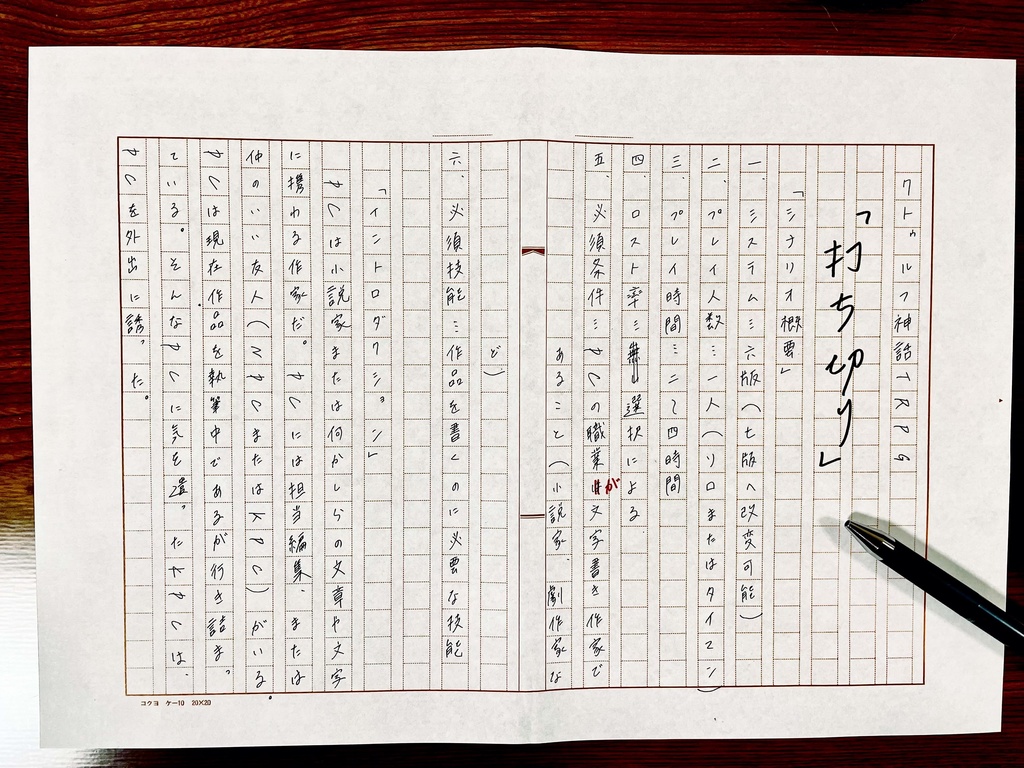 クトゥルフ神話TRPG
「打ち切り」
「シナリオ概要」
一.システム:六版(七版へ改変可能)
二.プレイ人数:一人(ソロまたはタイマン)
三.プレイ時間:二〜四時間
四.ロスト率:選択による
五.必須条件:PCの職業が文字書き作家で
あること(小説家、劇作家な
ど)
六.必須技能:作品を書くのに必要な技能
「イントロダクション」
PCは小説家または何かしらの文章や文字
に携わる作家だ。PCには担当編集、または
仲のいい友人(NPCまたはKPC)がいる。
PCは現在作品を執筆中であるが行き詰まっ
ている。そんなPCに気を遣ったKPCは、
PCを外出に誘った。
コクヨ ケー10 20×20